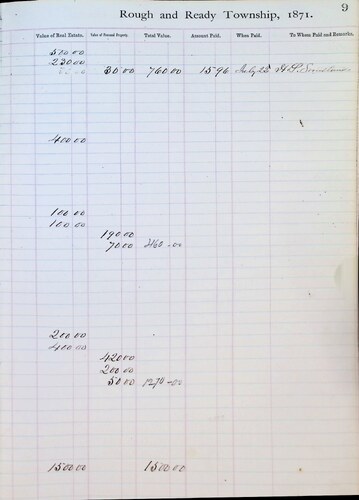 9
Rough and Ready Township, 1871.
Value of Real Estate. Value of Personal Property. Total Value. Amount Paid. When Paid. To Whom Paid and Remarks.
500 00
230 00
30 00 760 00 15 96 July 25
400 00
100 00
100 00
190 00
70 00 460 00
200 00
400 00
420 00
200 00
50 00 1270 00
1500 00 1500 00